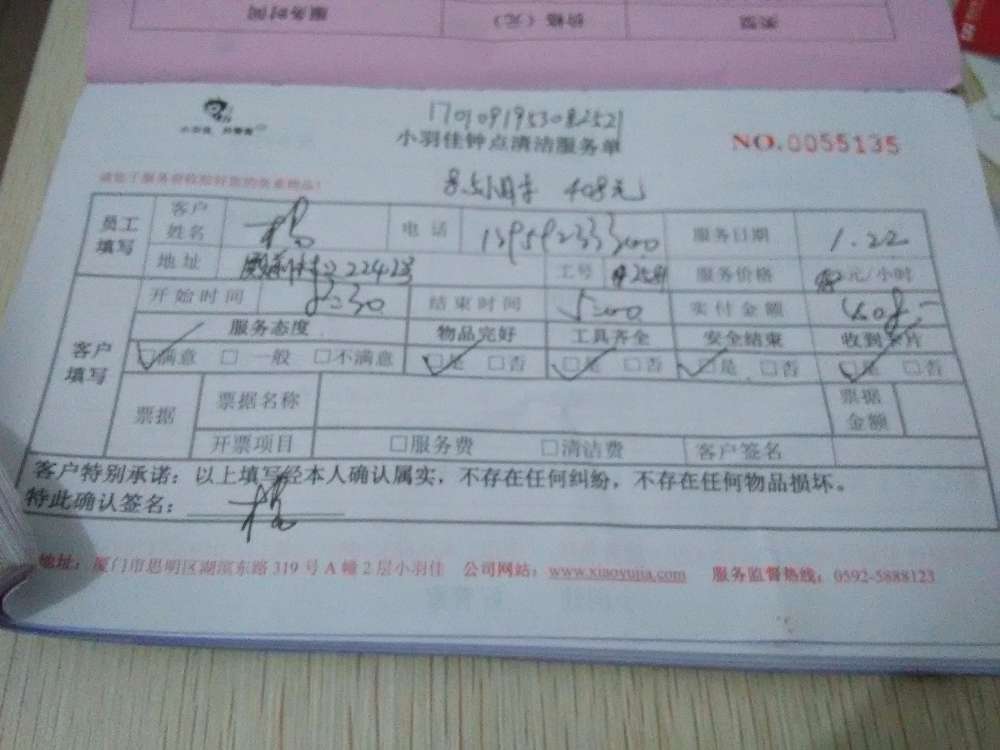 服务时间 价格（元） 类型
1701091953082521
小羽佳钟点清洁服务单
NO.0055135
8.5小时 408元
员工填写 客户姓名 电话 服务日期 1.22
地址 2242 工号 服务价格 元/小时
客户填写 开始时间 8:30 结束时间 5:00 实付金额 408-
服务态度 物品完好 工具齐全 安全结束 收到卡片
□满意 □一般 □不满意 □是 □否 □是 □否 □是 □否 □是 □否
票据 票据名称 票据金额
开票项目 □服务费 □清洁费 客户签名
客户特别承诺：以上填写经本人确认属实，不存在任何纠纷，不存在任何物品损坏。
特此确认签名：
地址：厦门市思明区湖滨东路319号A幢2层小羽佳 公司网站：www.xiaoyujia.com 服务监督热线：0592-5888123